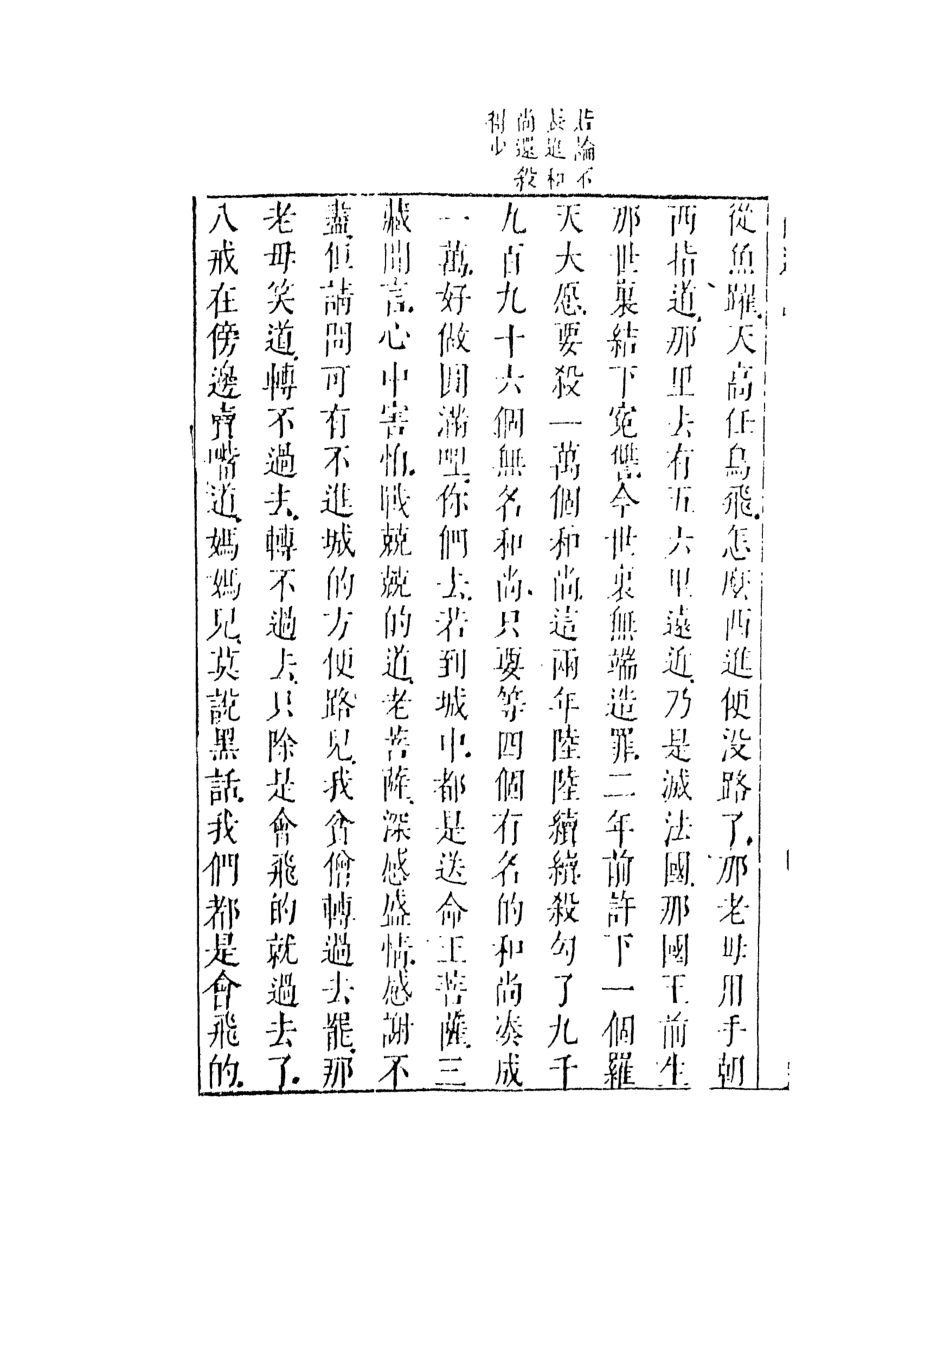 若論不
長進和
尚還殺
得少
從魚躍天高任鳥飛怎麽西進便没路了那老母用手朝
西指道那里去有五六里遠近乃是滅法國那國王前生
那世裏結下寃讐今世裏無端造罪二年前許下一個羅
天大愿要殺一萬個和尚這兩年陸陸續續殺勾了九千
九百九十六個無名和尚只要等四個有名的和尚凑成
一萬好做圓滿哩你們去若到城中都是送命王菩薩三
藏聞言心中害怕戰兢兢的道老菩薩深感盛情感謝不
盡但請問可有不進城的方便路兒我貧僧轉過去罷那
老母笑道轉不過去轉不過去只除是會飛的就過去了
八戒在傍邊賣嘴道媽媽兒莫說黑話我們都是會飛的